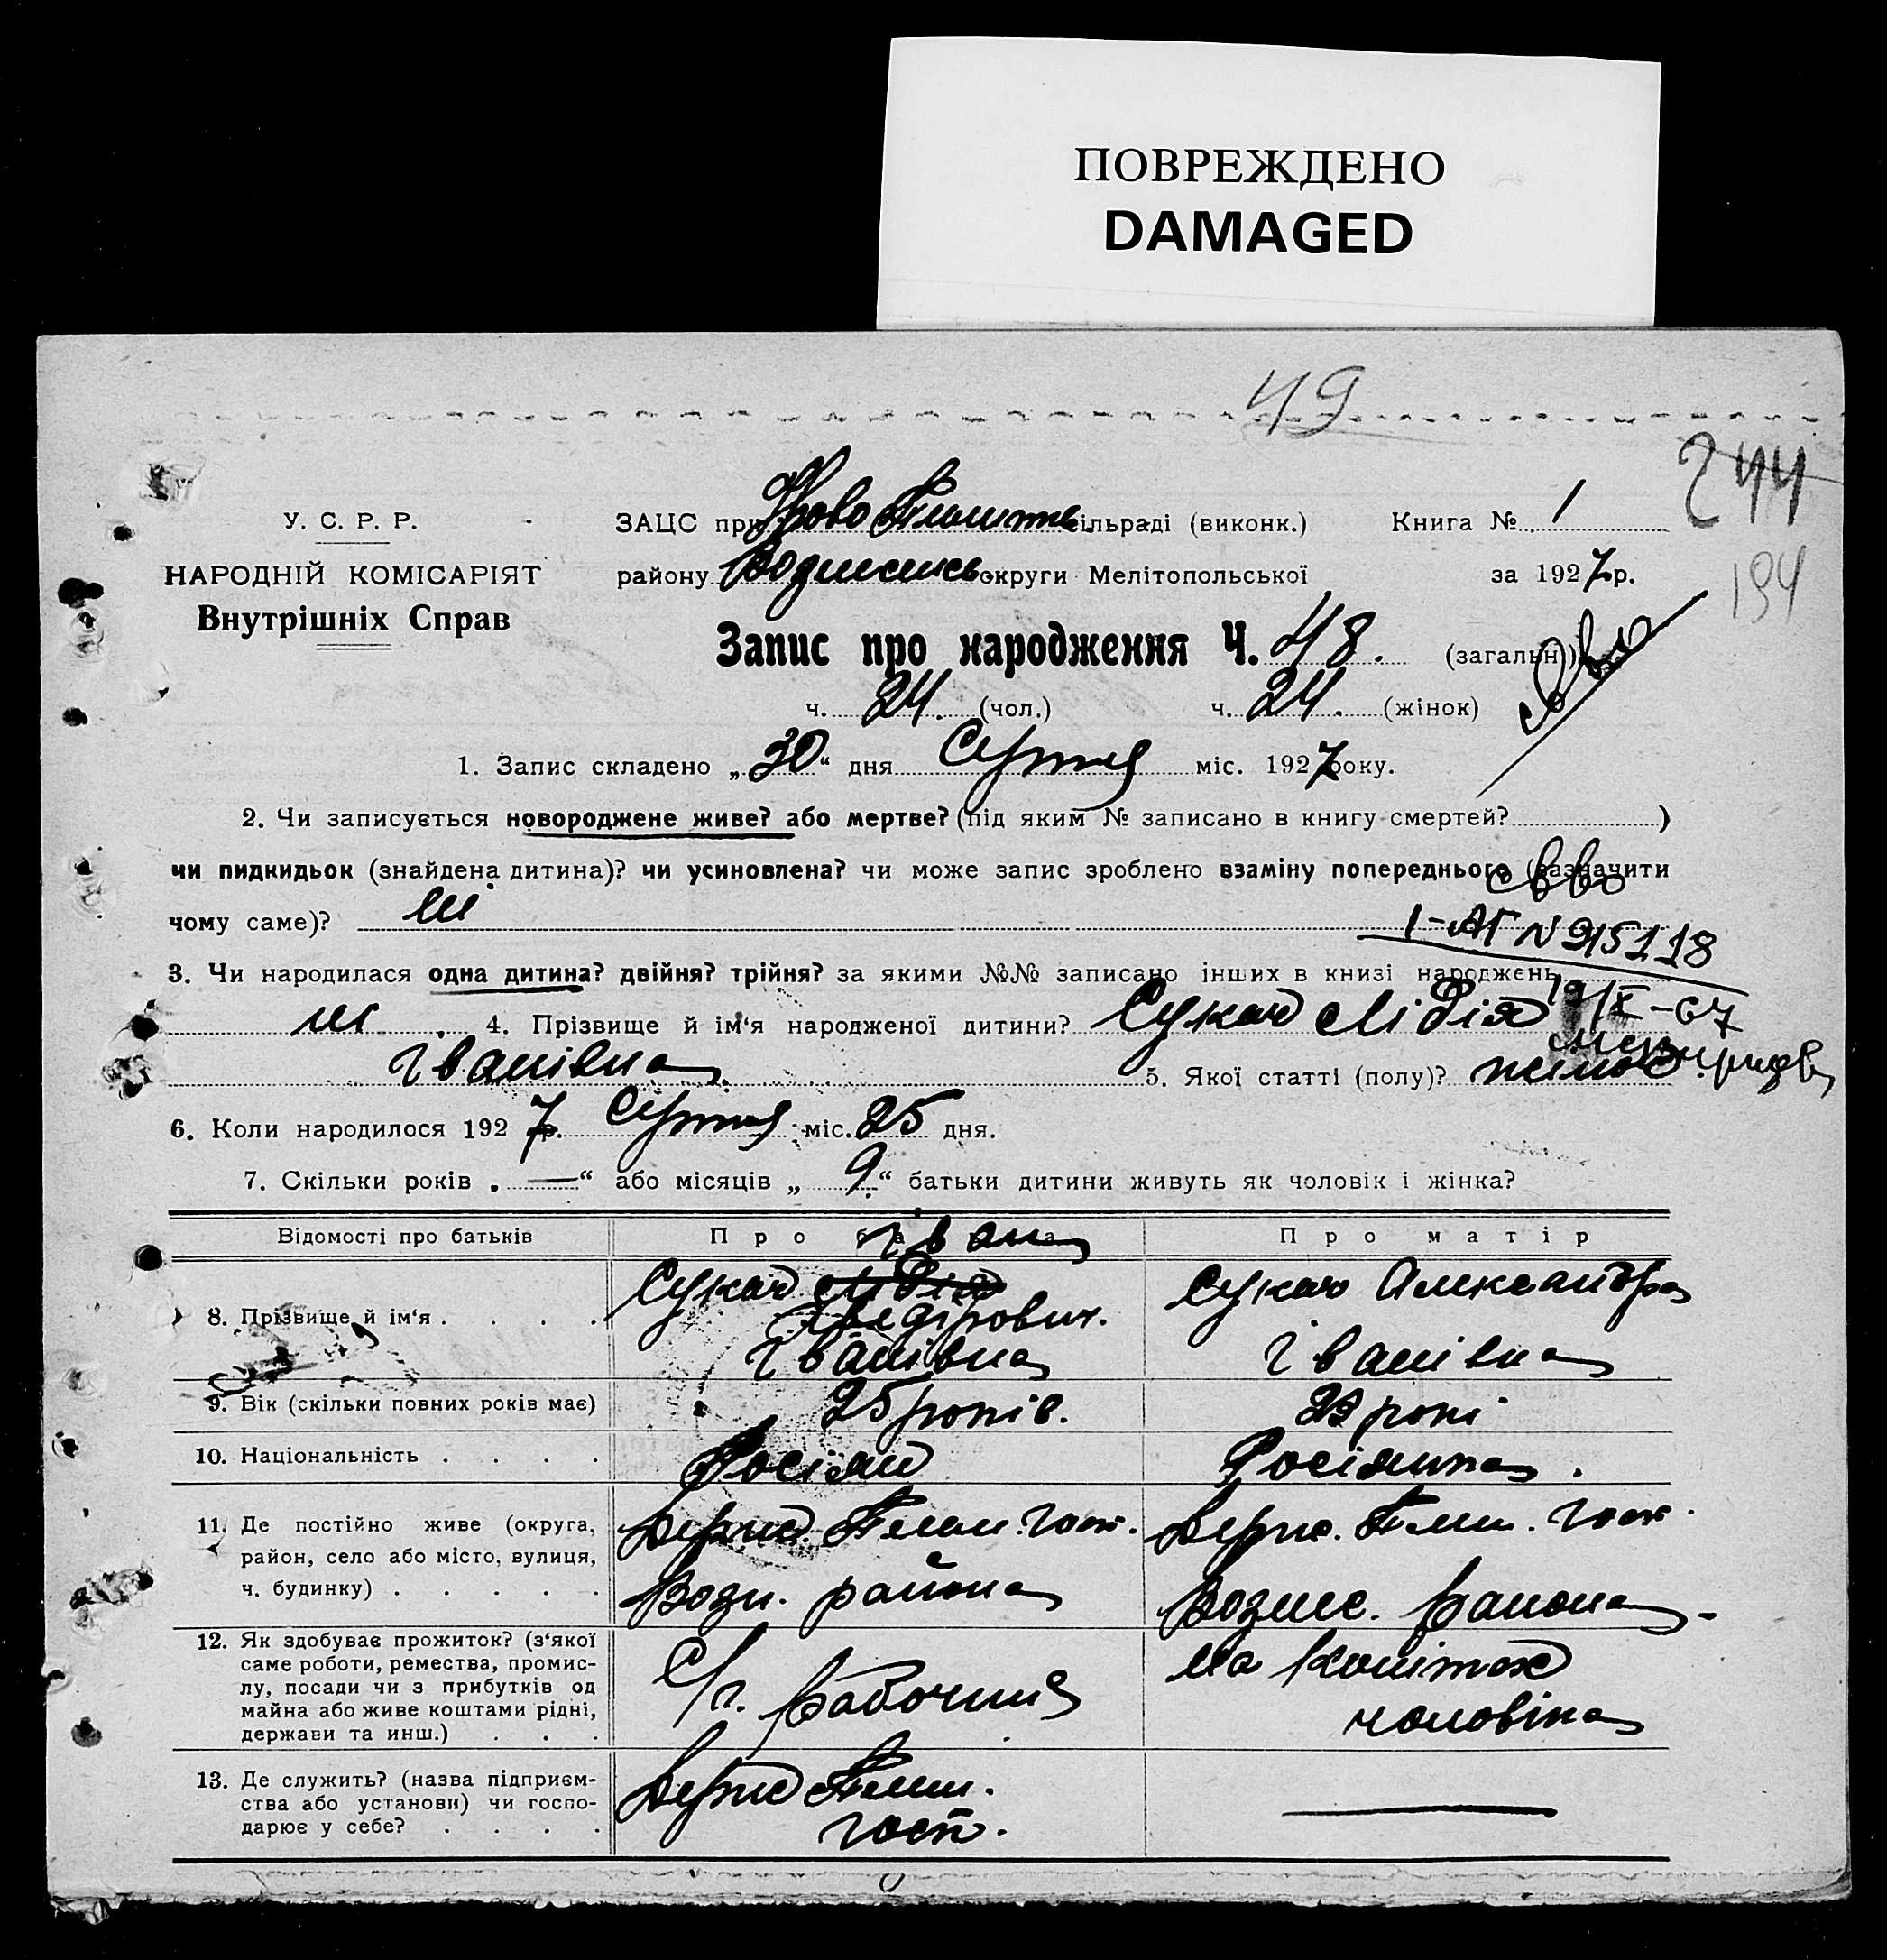 ПОВРЕЖДЕНО
DAMAGED
49
244
194
У. С. Р. Р.
НАРОДНІЙ КОМІСАРІЯТ
Внутрішніх Справ
ЗАЦС при Ново сільраді (виконк.) Книга № 1
району округи Мелітопольської за 1927 р.
Запис про народження Ч. 48. (загальн.)
ч. 24. (чол.) ч. 24. (жінок)
1. Запис складено „30“ дня Серпня міс. 1927 року.
2. Чи записується новороджене живе? або мертве? (під яким № записано в книгу смертей? )
чи пидкидьок (знайдена дитина)? чи усиновлена? чи може запис зроблено взаміну попереднього (зазначити
чому саме)? Ні
св во
I-АГ N 915118
3. Чи народилася одна дитина? двійня? трійня? за якими №№ записано інших в книзі народжень
ні 4. Прізвище й ім'я народженої дитини? Сукач Лідія
/IX-67
Іванівна 5. Якої статті (полу)? жіноч.
6. Коли народилося 1927 р. Серпня міс. 25 дня.
7. Скільки років „—“ або місяців „9“ батьки дитини живуть як чоловік і жінка?
Відомості про батьків Про батька Про матір
Іван
8. Прізвище й ім'я . . . . Сукач Лідія Сукач Александра
Федірович.
Іванівна Іванівна
9. Вік (скільки повних років має) 25 років. 23 роки
10. Національність . . . . Росіян Росіянка.
11. Де постійно живе (округа, Держ. Плем. Госп. Держ. Плем. Госп.
район, село або місто, вулиця,
ч. будинку) . . . . . Возн. района Вознес. района
12. Як здобуває прожиток? (з'якої
саме роботи, ремества, промис- С/г. Рабочий На коштах
лу, посади чи з прибутків од чоловіка
майна або живе коштами рідні,
держави та инш.) . . .
13. Де служить? (назва підприєм- Держ Плем.
ства або установи) чи госпо- госп. —
дарює у себе? . . . .